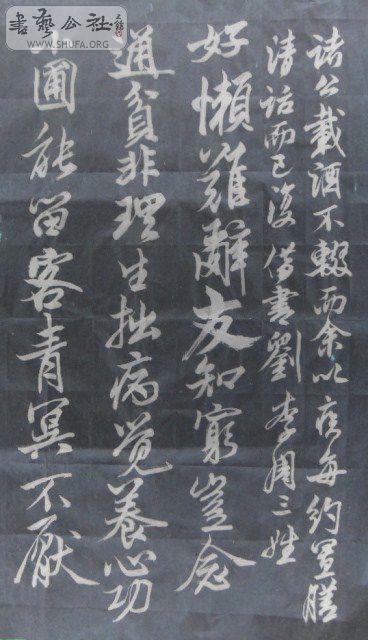 諸公載酒不輟而余以疾每約置膳
清話而已復借書劉李周三姓
好懶難辭友知窮豈念
通貧非理生拙病覺養心功
圃能留客青冥不厭
書藝公社
WWW.SHUFA.ORG